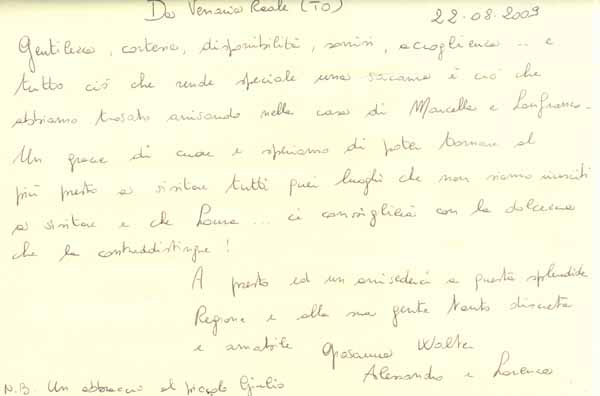 Da Venaria Reale (TO) 22.08.2009
Gentilezza, cortesia, disponibilità, sorrisi, accoglienza... e
tutto ciò che rende speciale una vacanza è ciò che
abbiamo trovato arrivando nella casa di Marcella e Lanfranco.
Un grazie di cuore e speriamo di poter tornare al
più presto a visitare tutti quei luoghi che non siamo riusciti
a visitare e che Laura... ci consiglierà con la dolcezza
che la contraddistingue!
A presto ed un arrivederci a questa splendida
Regione e alla sua gente tanto discreta
e amabile Rosanna Walter
Alessandro e Lorenzo
N.B. Un abbraccio al piccolo Giulio